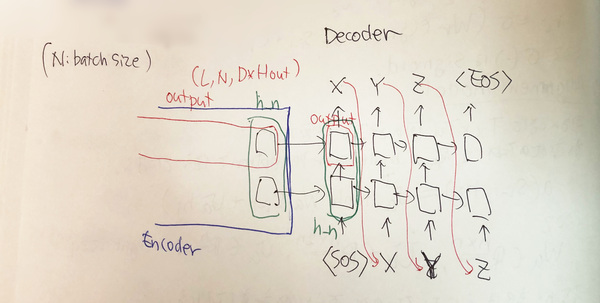 Decoder
(N: batch size)
(L, N, D×Hout)
output h_n
X Y Z <EOS>
output
Encoder
h_n
<SOS> X Y Z